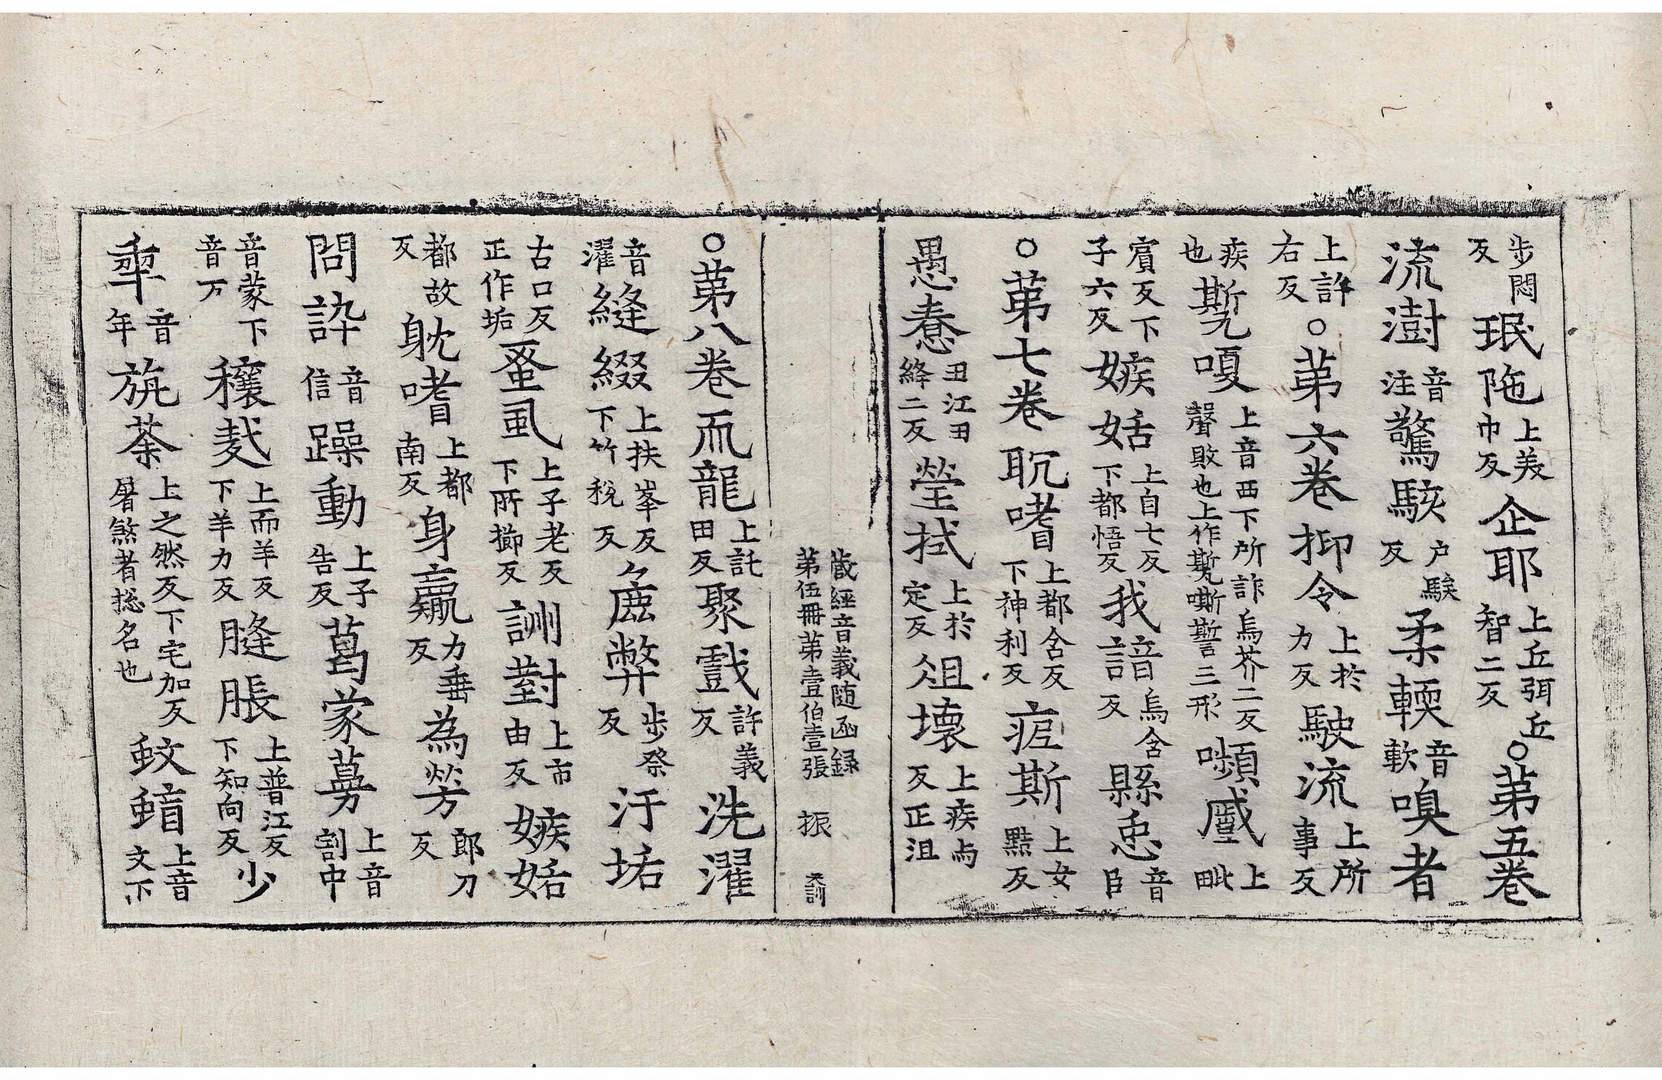 步悶反珉陁上美巾反企耶上丘弭丘智二反○苐五卷
流澍音注驚駭户騃反柔輭音軟嗅者
上許右反○苐六卷抑令上於力反駛流上所事反
疾也嘶嗄上音西下所詐烏芥二反聲敗也上作㽄嘶誓三形嚬蹙上毗
賔反下子六反嫉妬上自七反下都悟反我諳烏含反縣悤音臣
○苐七卷耽嗜上都含反下神利反痆斯上女黠反
愚惷丑江丑絳二反瑩拭上於定反爼壞上疾与反正沮
藏經音義随函録
苐伍冊苐壹伯壹張 振 天訓
○苐八卷而龍上託田反聚戲許義反洗濯
音濯縫綴上扶峯反下竹稅反麁弊步祭反汙垢
古口反正作垢蚤虱上子老反下所擳反詶對上市由反嫉妬
都故反躭嗜上都南反身羸力垂反為勞郎刀反
問訟音信躁動上子告反葛蒙蒡上音割中
音蒙下音万穰麩上而羊反下羊力反膖脹上普江反下知向反少
犂音年旃荼上之然反下宅加反暑煞者捴名也蚊蝱上音文下